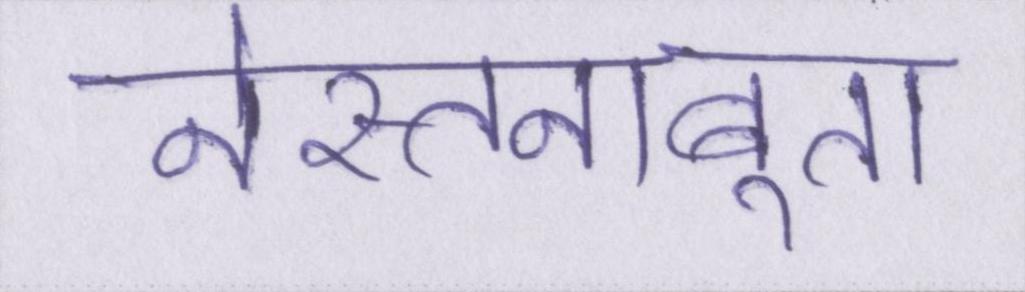 नेस्तनाबूता